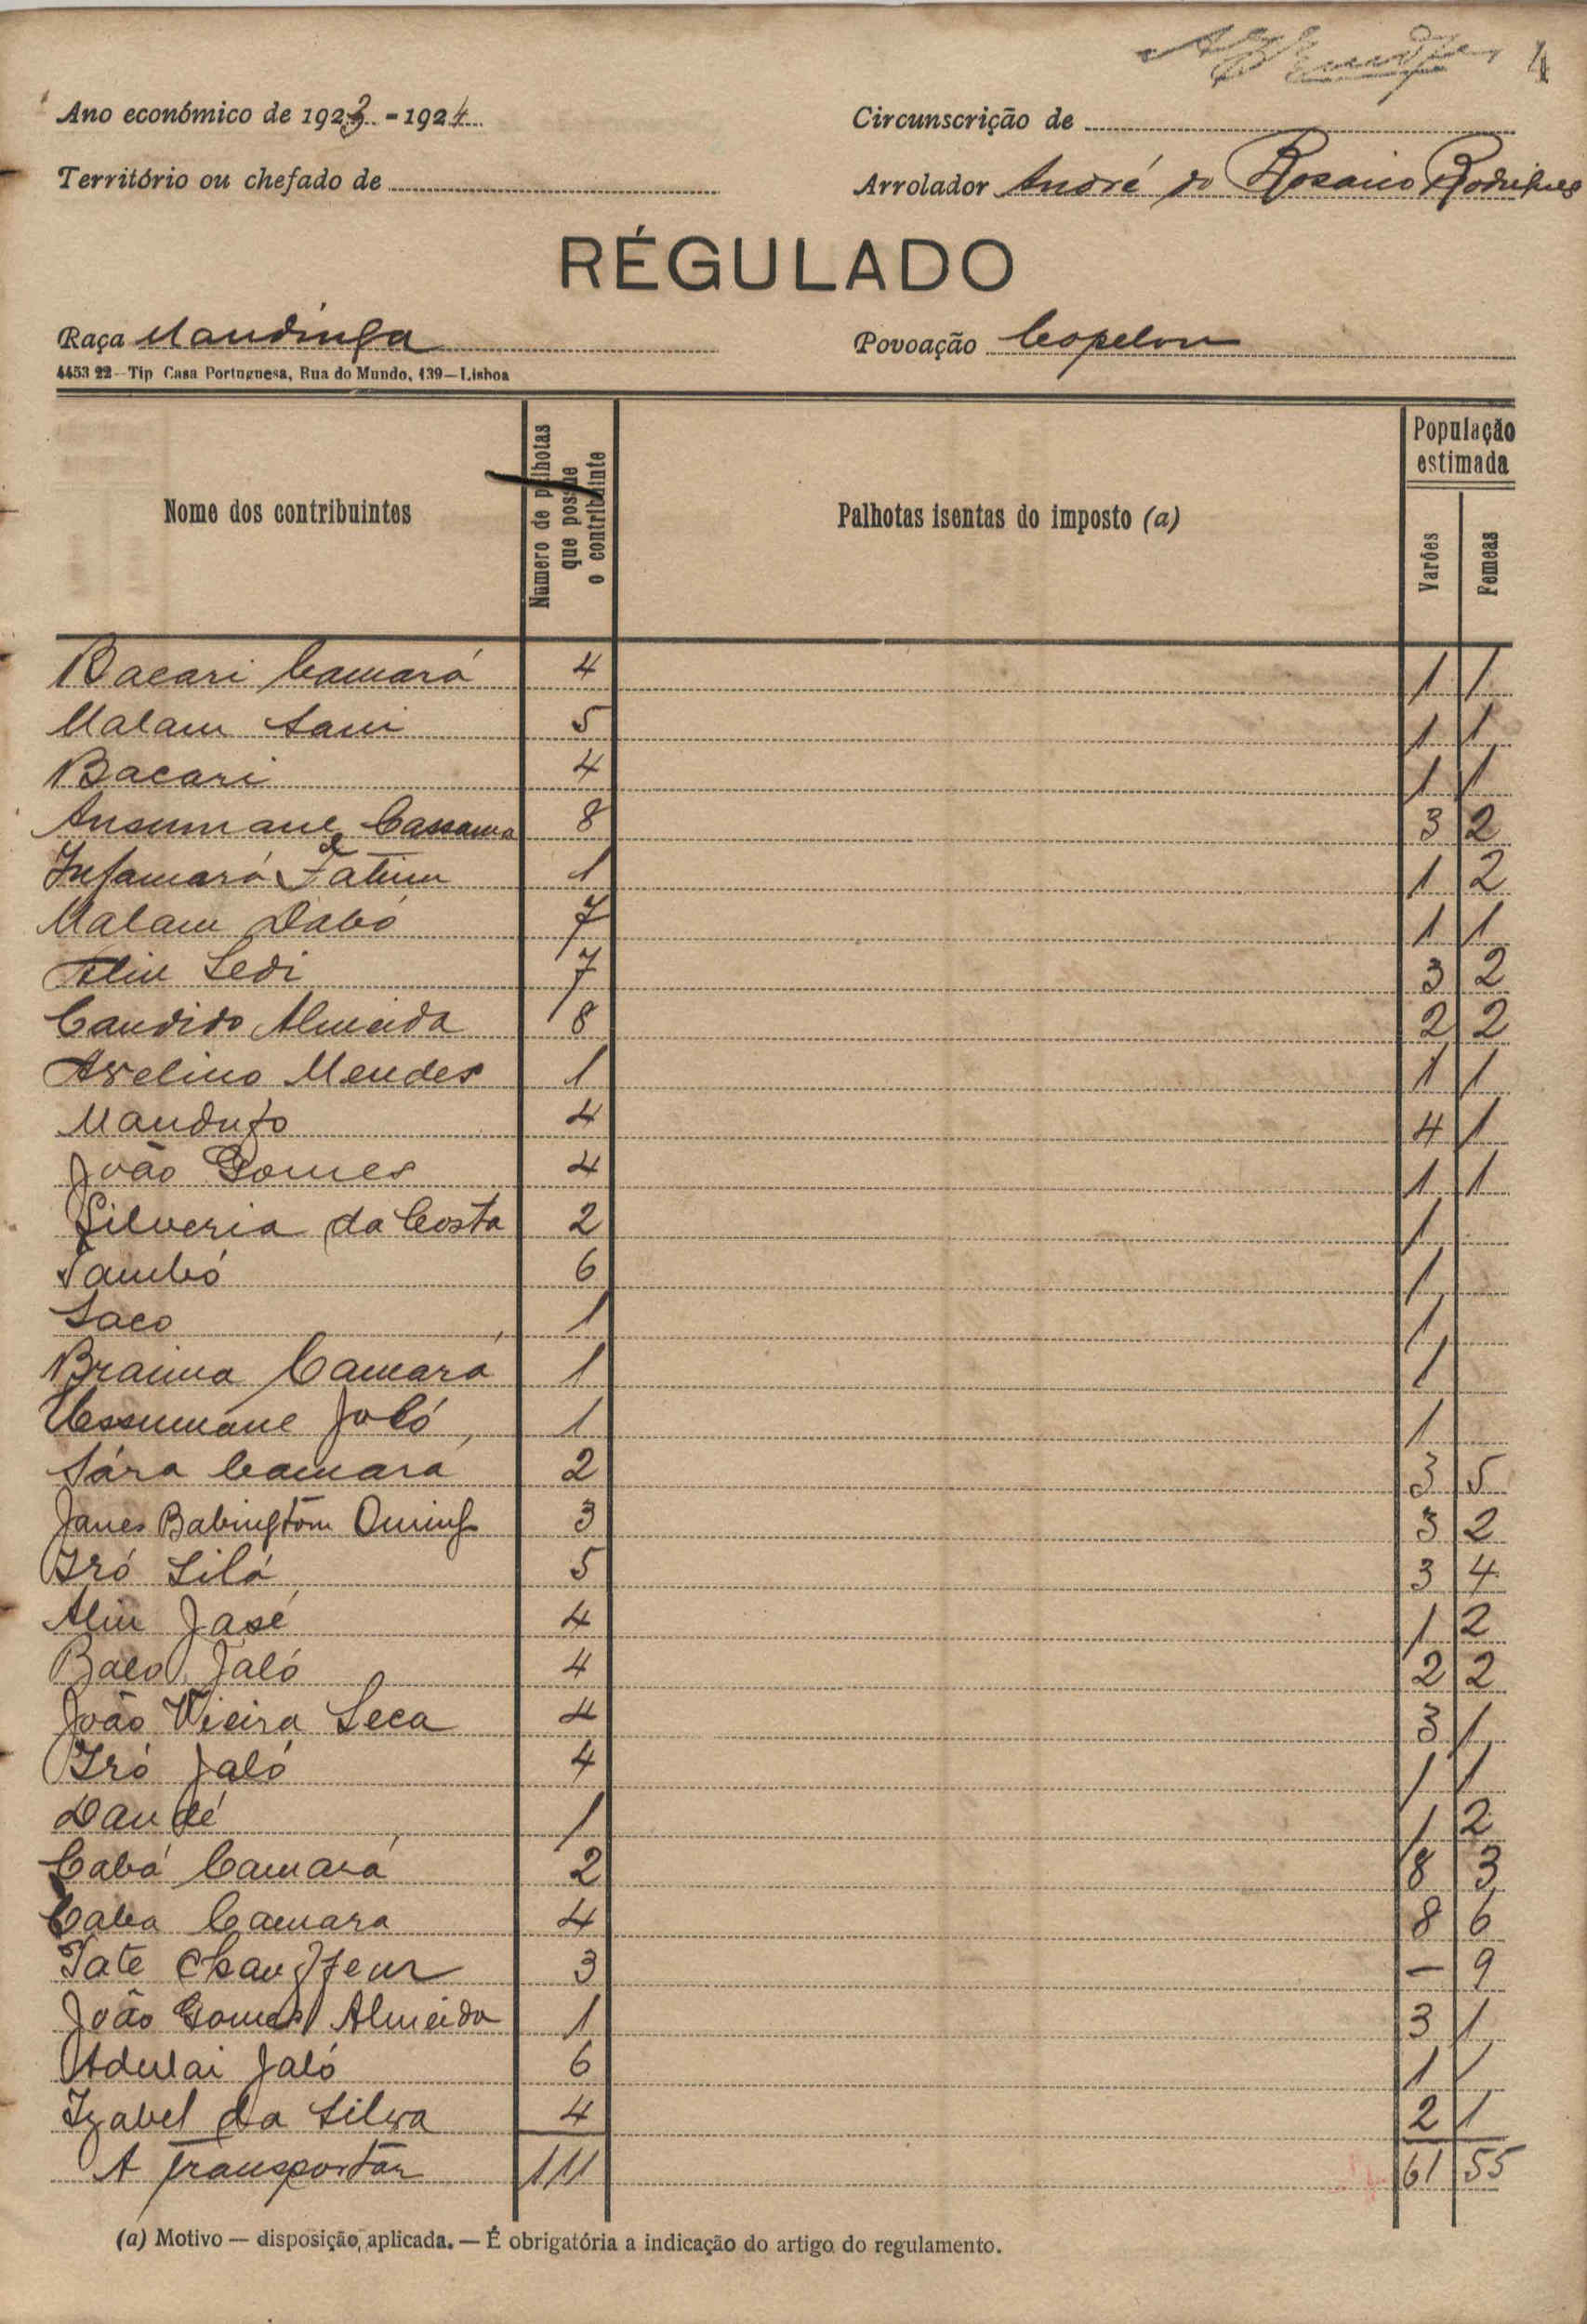 4
Ano económico de 1923-1924 Circunscrição de
Território ou chefado de Arrolador André do Rosario Rodrigues
RÉGULADO
Raça Mandinga Povoação Copelon
4453 22-Tip Casa Portuguesa, Rua do Mundo, 139-Lisboa
Nome dos contribuintes Número de palhotas que possue o contribuinte Palhotas isentas do imposto (a) População estimada Varões Femeas
Bacari Camará 4 1 1
Malam Sani 5 1 1
Bacari 4 1 1
Ansumane Cassama 8 3 2
Infamará Fatim 1 1 2
Malam Dabó 7 1 1
Aliu Sedi 7 3 2
Candido Almeida 8 2 2
Avelino Mendes 1 1 1
Mandufo 4 4 1
João Gomes 4 1 1
Silveria da Costa 2 1
Sambó 6 1
Saco 1 1
Braima Camará 1 1
Ussumane Jaló 1 1
Sára Camara 2 3 5
Janes Babington Oning 3 3 2
Iró Silá 5 3 4
Aliu Jasé 4 1 2
Balo Jaló 4 2 2
João Vieira Seca 4 3 1
Iró Jaló 4 1 1
Daudé 1 1 2
Cabá Camará 2 8 3
Caba Camara 4 8 6
Tate Chauffeur 3 — 9
João Gomes Almeida 1 3 1
Adulai Jaló 6 1 1
Izabel da Silva 4 2 1
A Transportar 111 61 55
(a) Motivo — disposição, aplicada. — É obrigatória a indicação do artigo do regulamento.